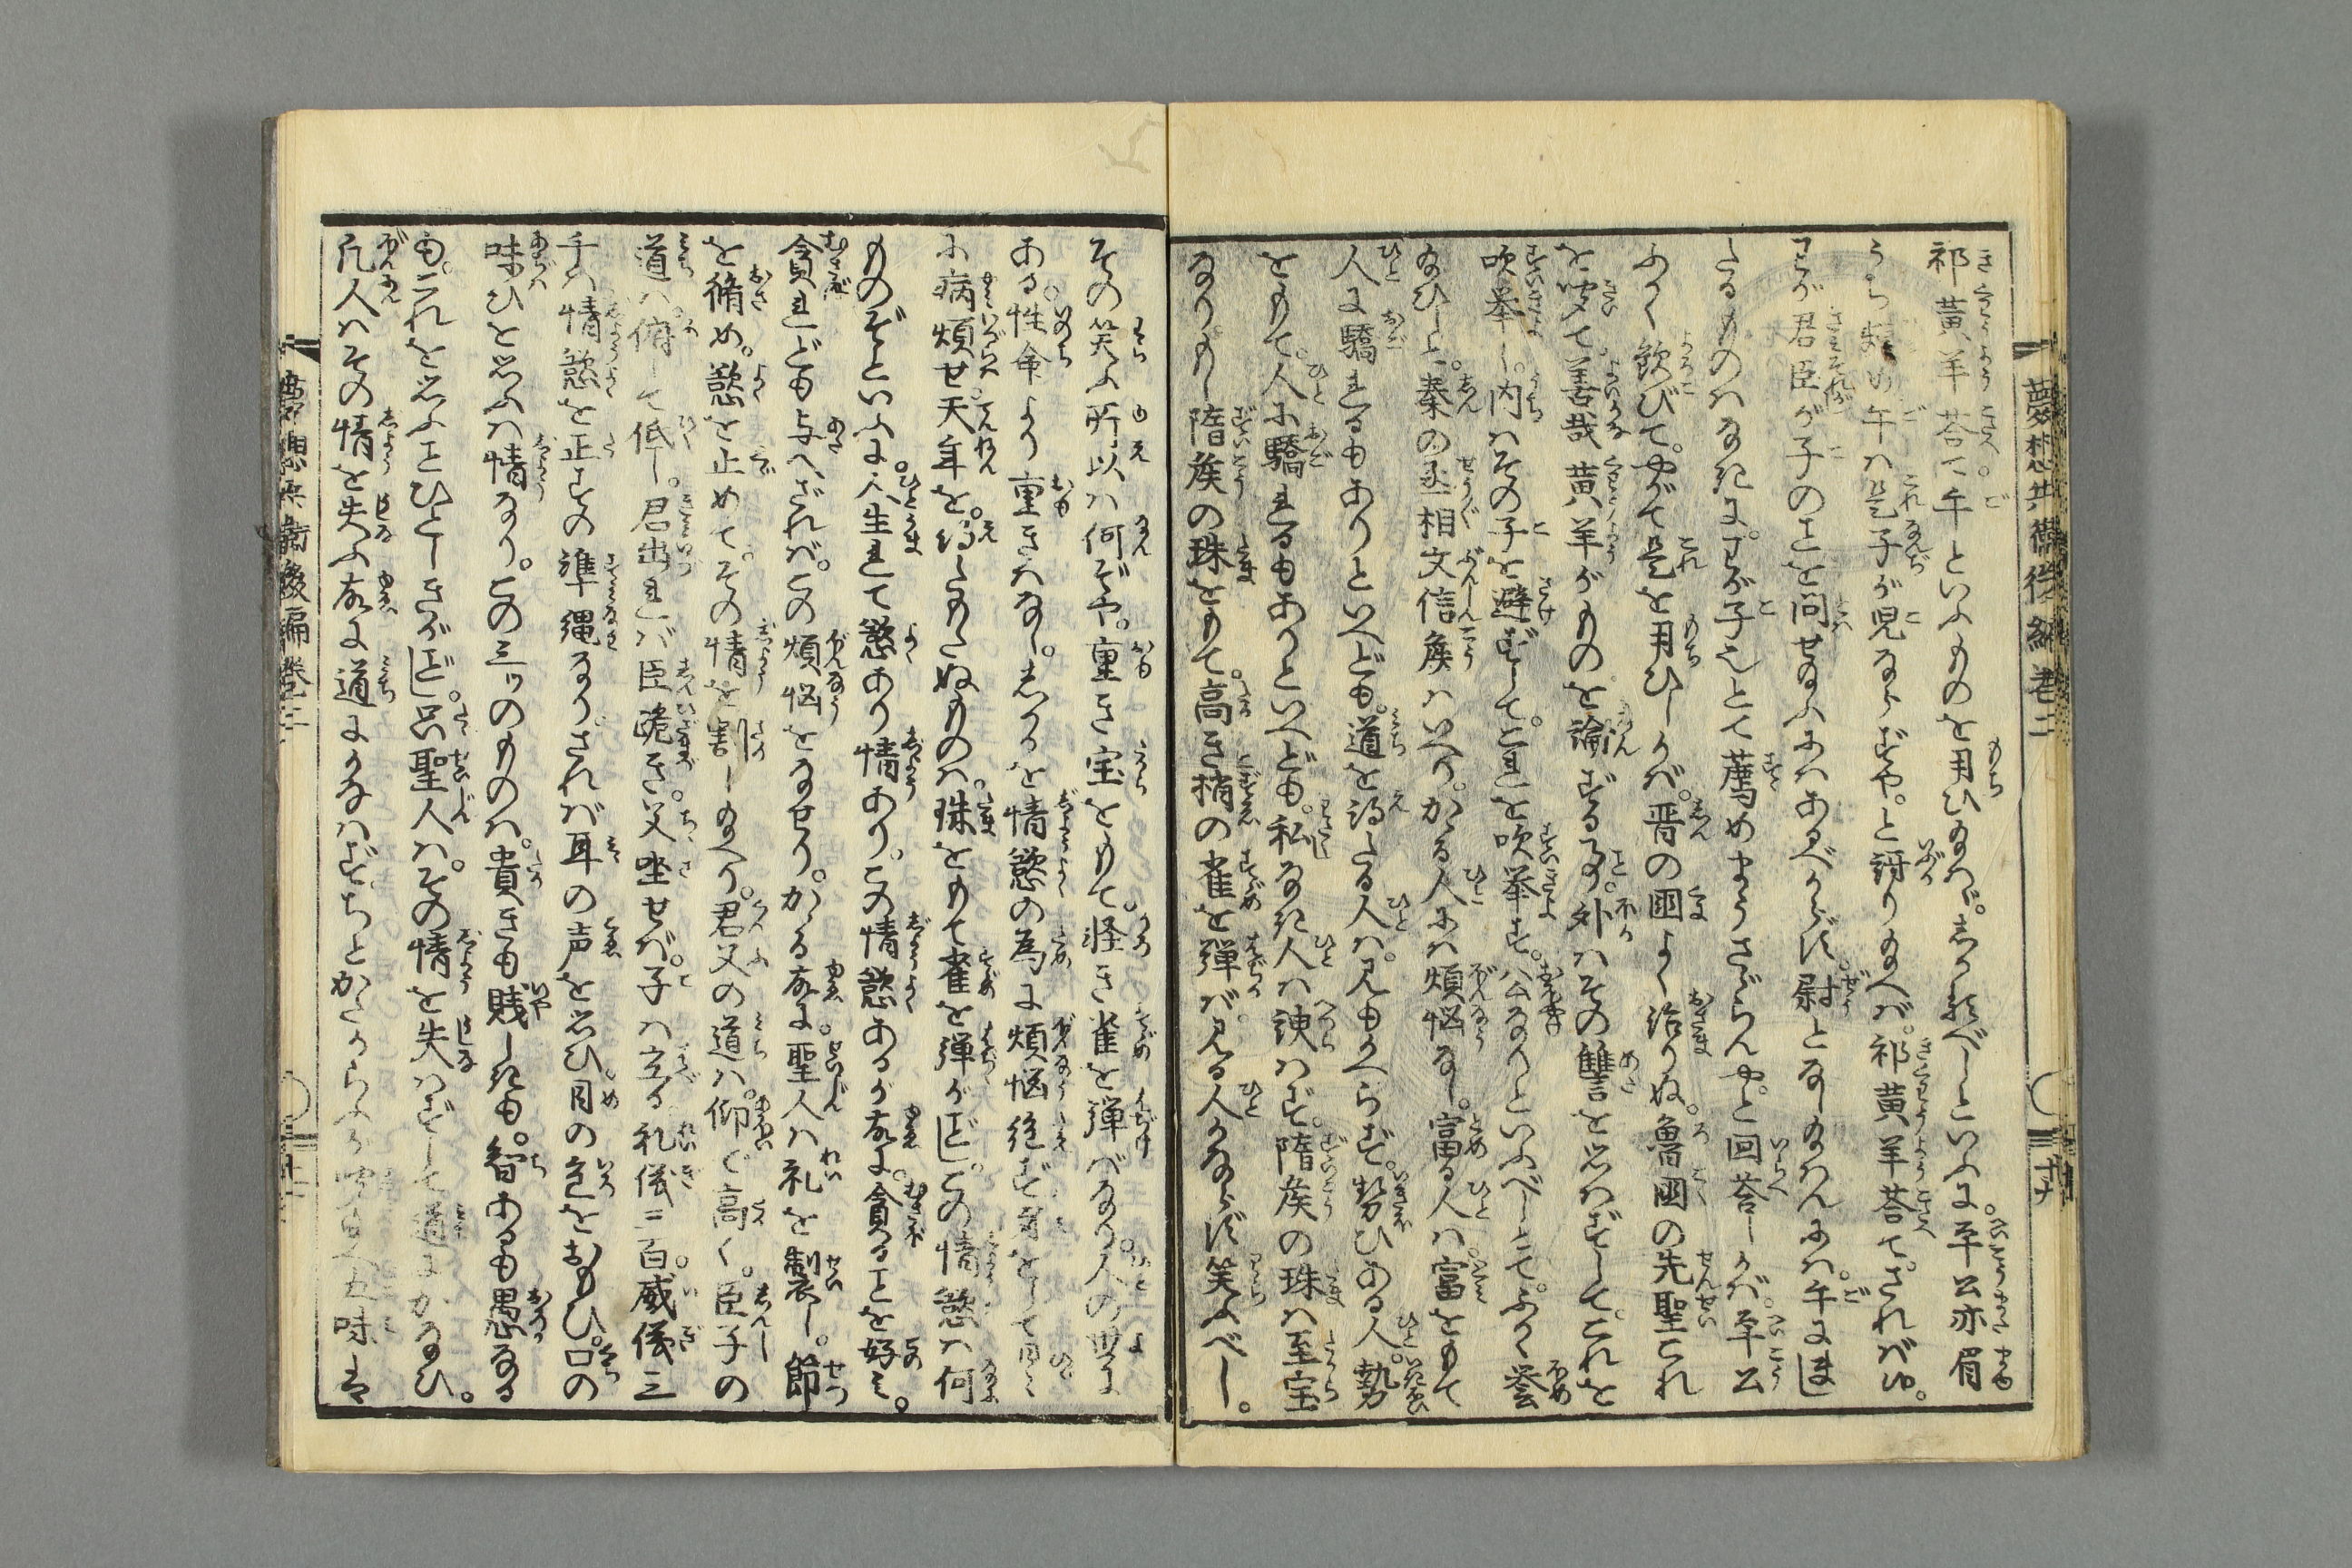 祁黄羊荅て午といふものを用ひ給へば。しかるべしといふに。平公亦眉
うち顰め午は是子が児ならずや。と訝り給へば。祁黄羊荅て。さればゆ。
わが君臣が子のことを問せ給ふにはあるべからず。尉となし給はんには。午にまし
たるものはなきに。わが子也とて薦めまうさゞらんや。と回荅しかば。平公
ふかく歓びて。やがて是を用ひしかば。晋の国よく治りぬ。魯国の先聖これ
を聞て善哉黄羊がものを論ずる事。外はその讐を思はずして。これを
吹挙し。内はその子を避ずして。これを吹挙す。公なりといふべしとて。ふかく誉
給ひしと。秦の丞相文信侯はいへり。かゝる人には煩悩なし。富る人は。富をもて
人に驕るもありといへども。道を得たる人は。見もかへらず。勢ひある人。勢
をもて。人に驕るもありといへども。私なき人は諛はず。隋侯の珠は至宝
なり。もし隋侯の珠をもて。高き梢の雀を弾ば。見る人かならず笑ふべし。
その笑ふ所以は何ぞや。重き宝をもて。軽き雀を弾ばなり。人の世に
ある。性命より重きはなし。しかるを情慾の為に煩悩絶ず身をして日々
に病煩せ。天年を。得たもたぬものは。珠をもて雀を弾がごとし。この情慾は何
ものぞといふに。人生れて慾あり情あり。この情慾あるが故に。貪ることを好み。
貪れども与へざれば。この煩悩をなせり。かゝる故に。聖人は礼を製し。節
を脩め。慾を止めて。その情を割し給へり。君父の道は。仰で高く。臣子の
道は。俯して低し。君出れば臣跪き。父坐せば。子は立る礼儀三百威儀三
千は情慾を正すの準縄なり。されば耳の声を思ひ。目の色をおもひ。口の
味ひを思ふは情なり。この三ッのものは。貴きも賎しきも。智あるも愚なる
も。これを思ふことひとしきがごとし。只聖人は。その情を失はずして道にかなひ。
凡人はその情を失ふ故に道にかなはず。
夢想兵衛後編巻二
夢想兵衛後編巻二